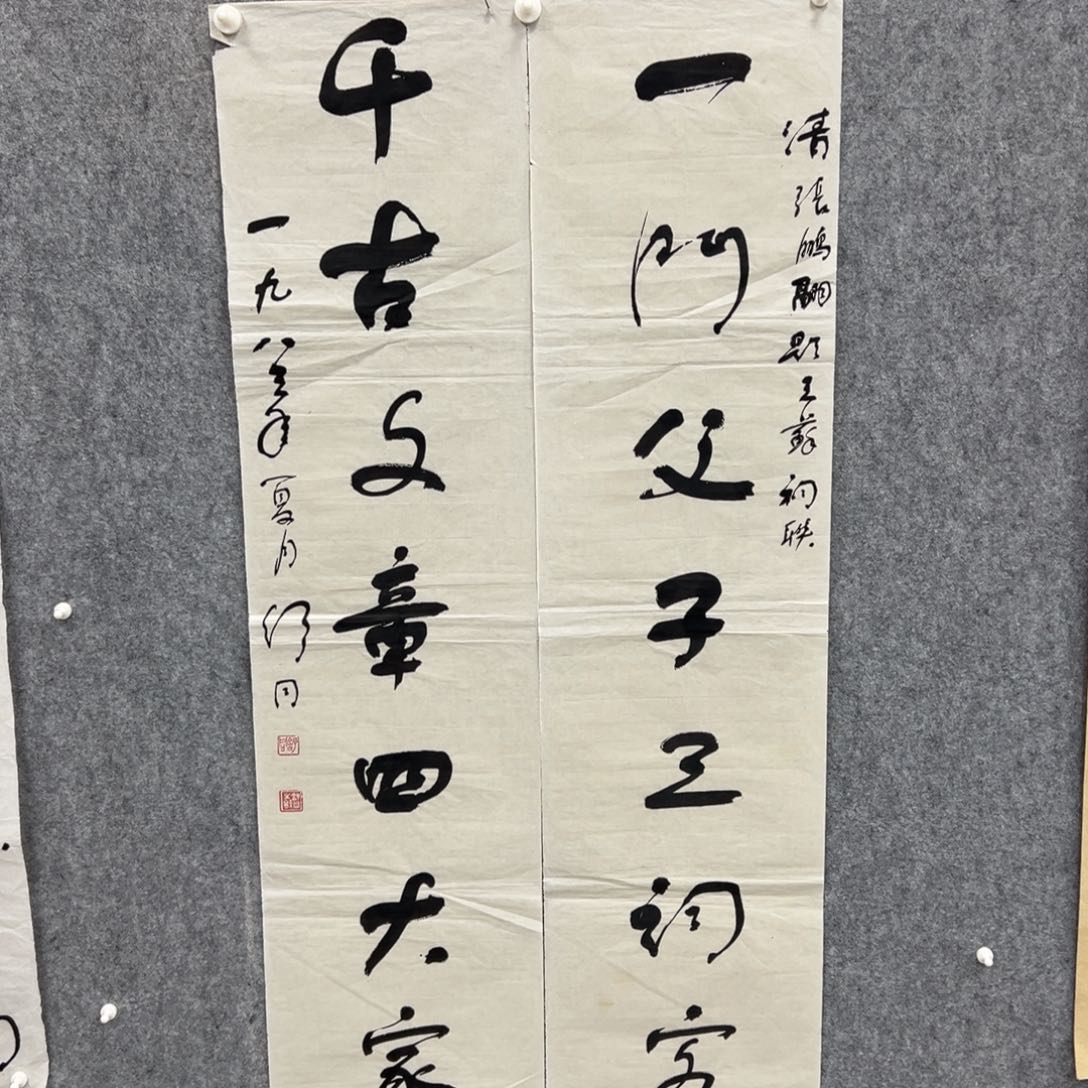 清張鵬翮題三蘇祠聯
一門父子三詞客
千古文章四大家
一九八三年夏月舒同